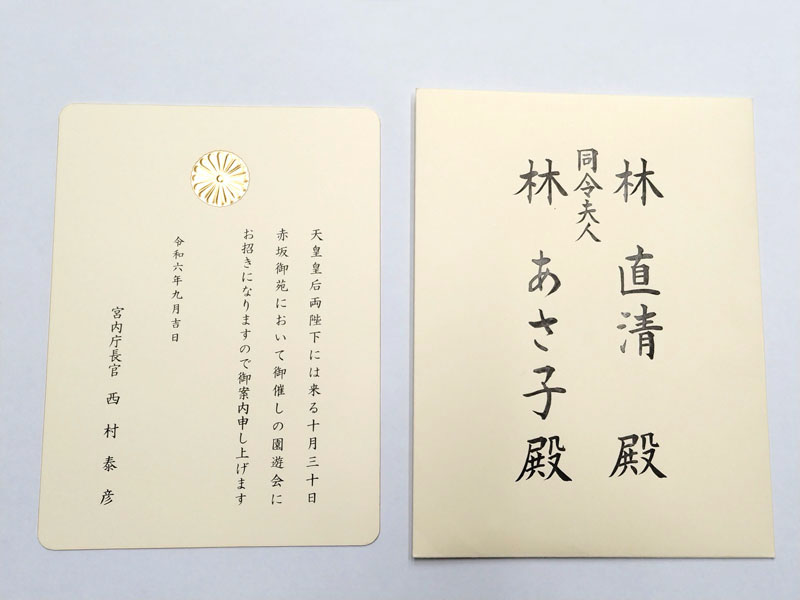 天皇皇后両陛下には来る十月三十日
赤坂御苑において御催しの園遊会に
お招きになりますので御案内申し上げます
令和六年九月吉日
宮内庁長官 西村泰彦
林 直清 殿
同令夫人
林 あさ子殿